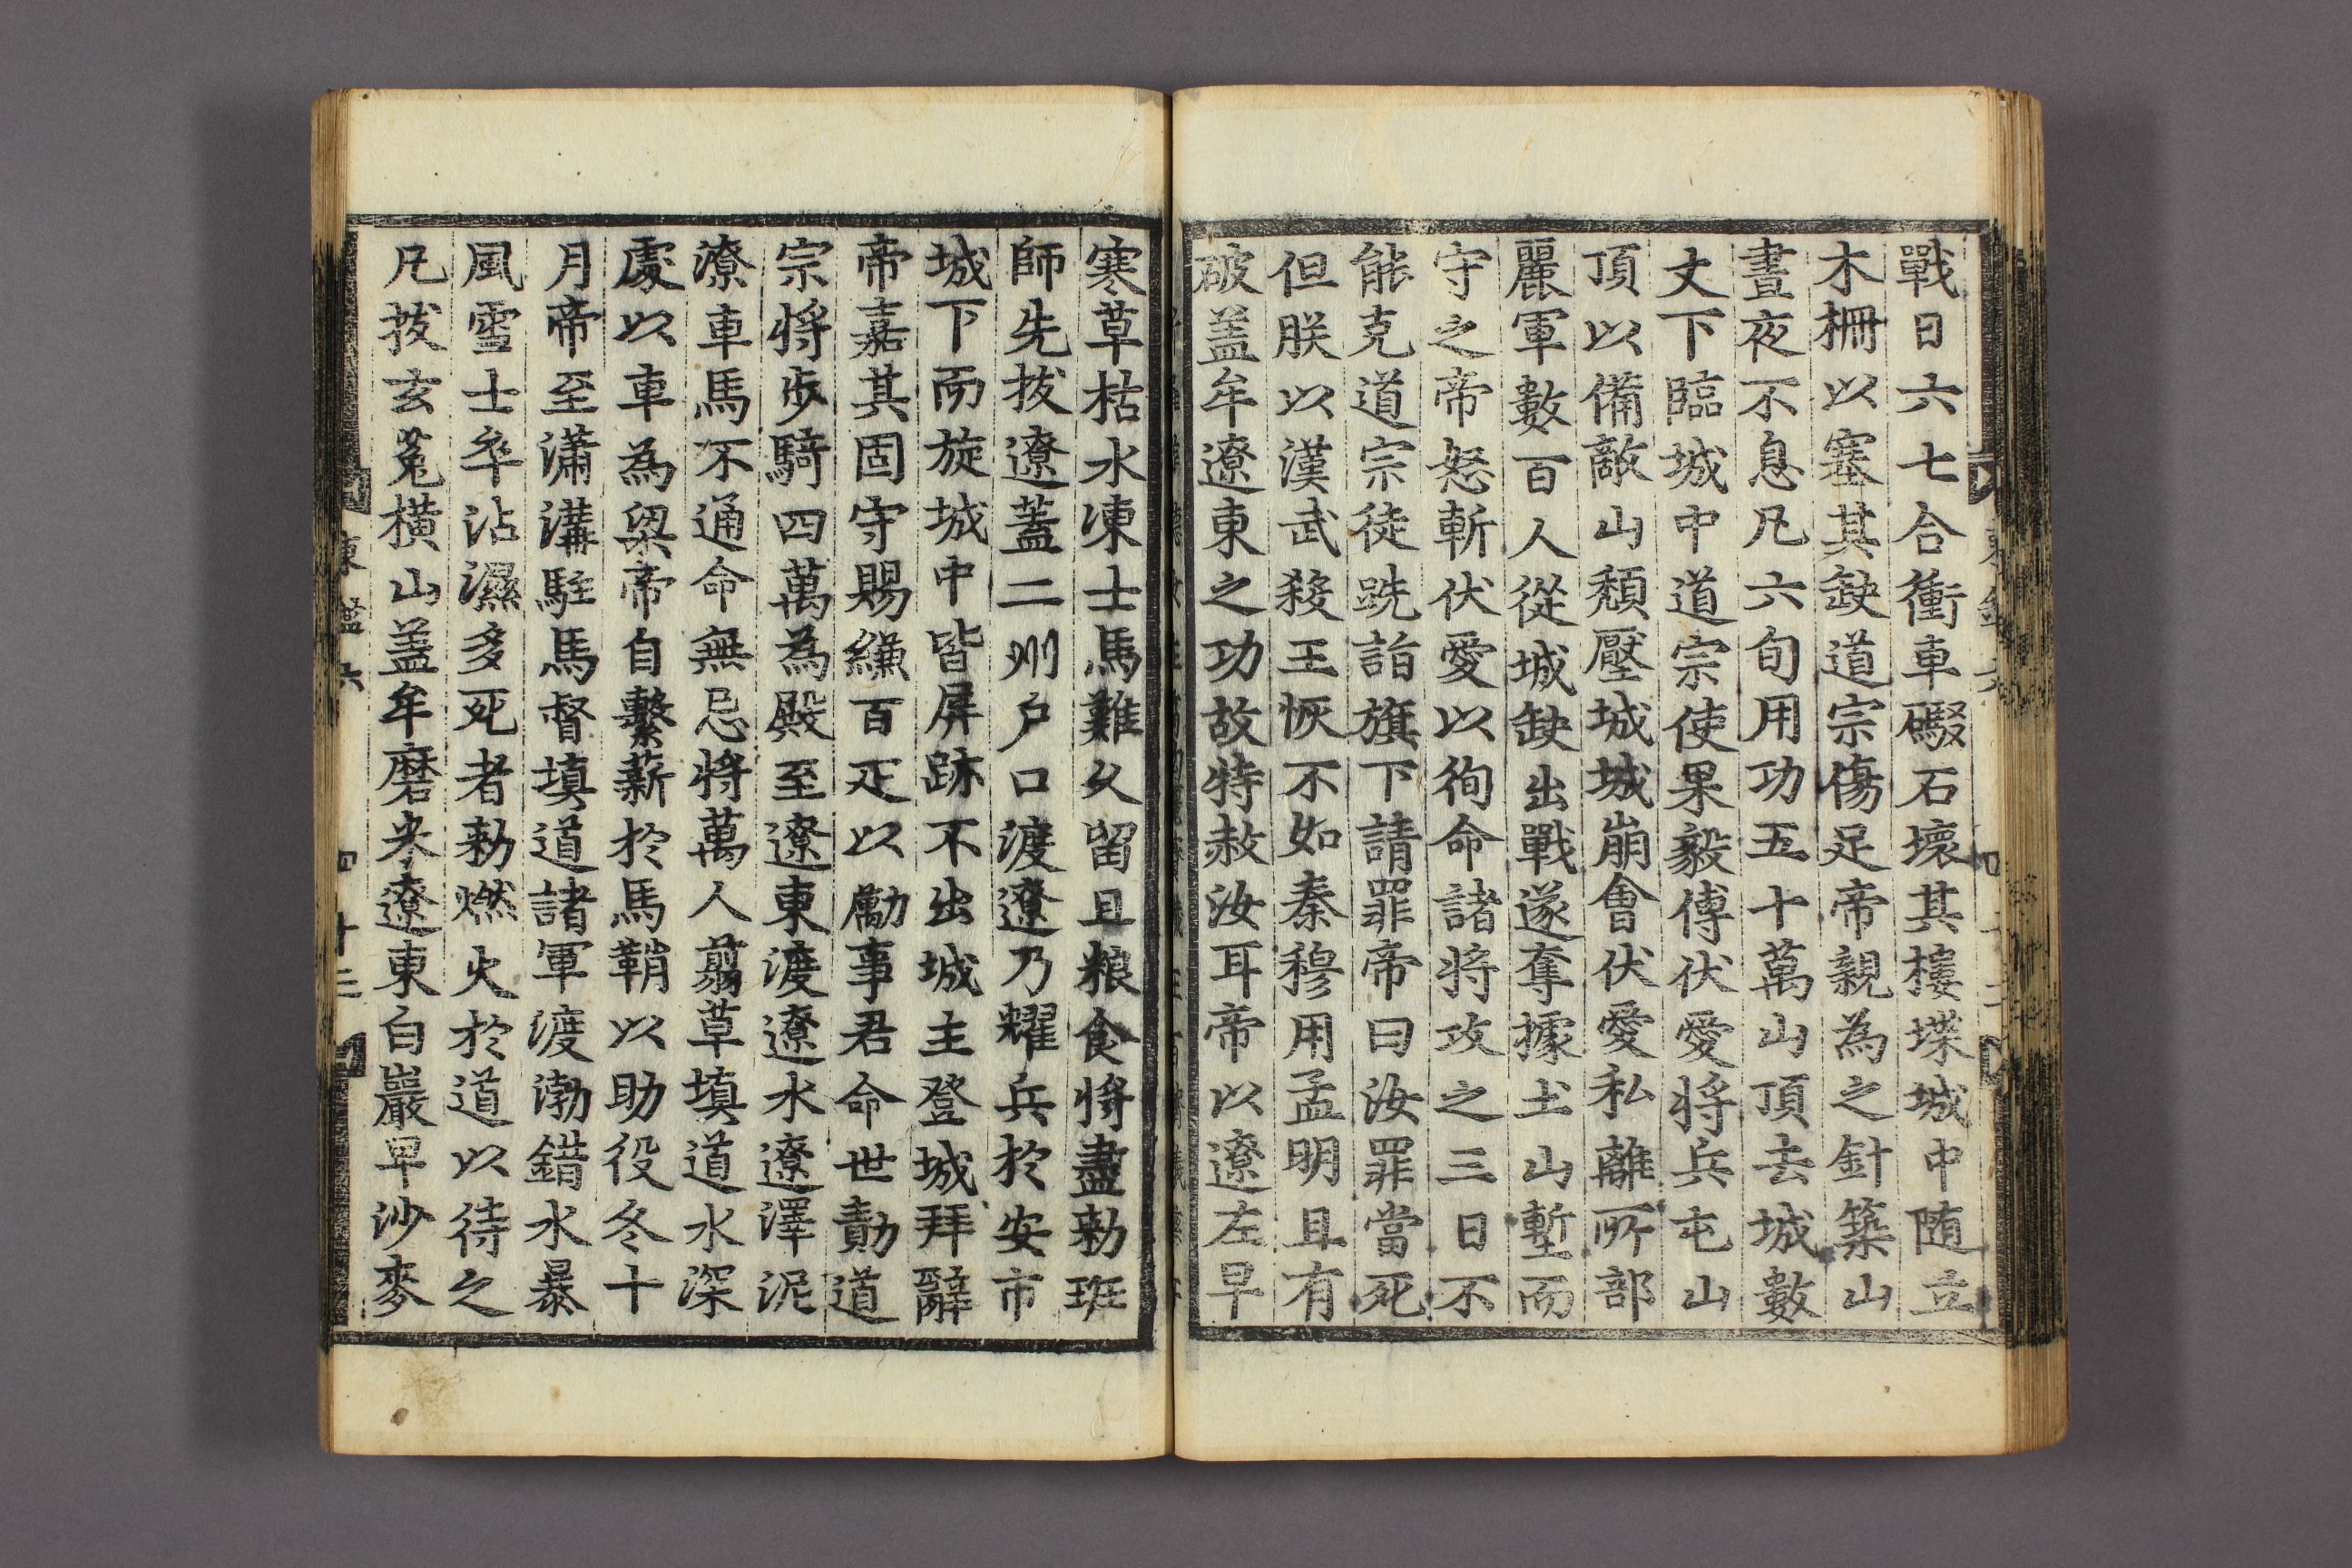 戰日六七合衝車礮石壞其樓堞城中随立
木柵以塞其缺道宗傷足帝親為之針築山
晝夜不息凡六旬用功五十萬山頂去城數
丈下臨城中道宗使果毅傅伏愛將兵屯山
頂以備敵山頹壓城城崩會伏愛私離所部
麗軍數百人從城缺出戰遂奪據土山塹而
守之帝怒斬伏愛以徇命諸將攻之三日不
能克道宗徒跣詣旗下請罪帝曰汝罪當死
但朕以漢武殺王恢不如秦穆用孟明且有
破盖牟遼東之功故特赦汝耳帝以遼左早
寒草枯水凍士馬難久留且粮食將盡勑班
師先拔遼蓋二州户口渡遼乃耀兵於安市
城下而旋城中皆屏跡不出城主登城拜辭
帝嘉其固守賜縑百疋以勵事君命世勣道
宗将歩騎四萬為殿至遼東渡遼水遼澤泥
潦車馬不通命無忌將萬人翦草填道水深
處以車為梁帝自繫薪於馬鞘以助役冬十
月帝至潚溝駐馬督填道諸軍渡渤錯水暴
風雪士卒沾濕多死者勑燃火於道以待之
凡拔玄菟橫山盖牟磨米遼東白巖卑沙麥
東鑑六
四十三